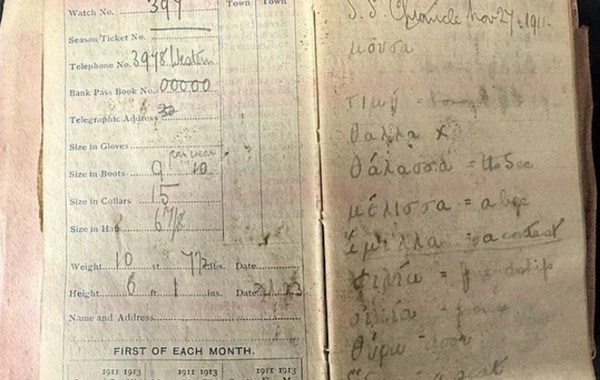 Watch No. 397
Town Town
Season Ticket No.
Telephone No. 3978 Western
Bank Pass Book No. 00000
Telegraphic Address
Size in Gloves
can wear
Size in Boots 9 10
Size in Collars 15
Size in Hat 6 7/8
Weight 10 st. 7½ lbs. Date
Height 6 ft. 1 ins. Date
Name and Address
FIRST OF EACH MONTH.
1911 1913 1911 1913 1911 1913
S.S. Chronicle Nov 27. 1911.
μουσα
τιμη =
θαλλα x
θάλασσα = the Sea
μέλισσα = a bee
ἁμιλλα = a contest
φιλία = friendship
θύρα = door